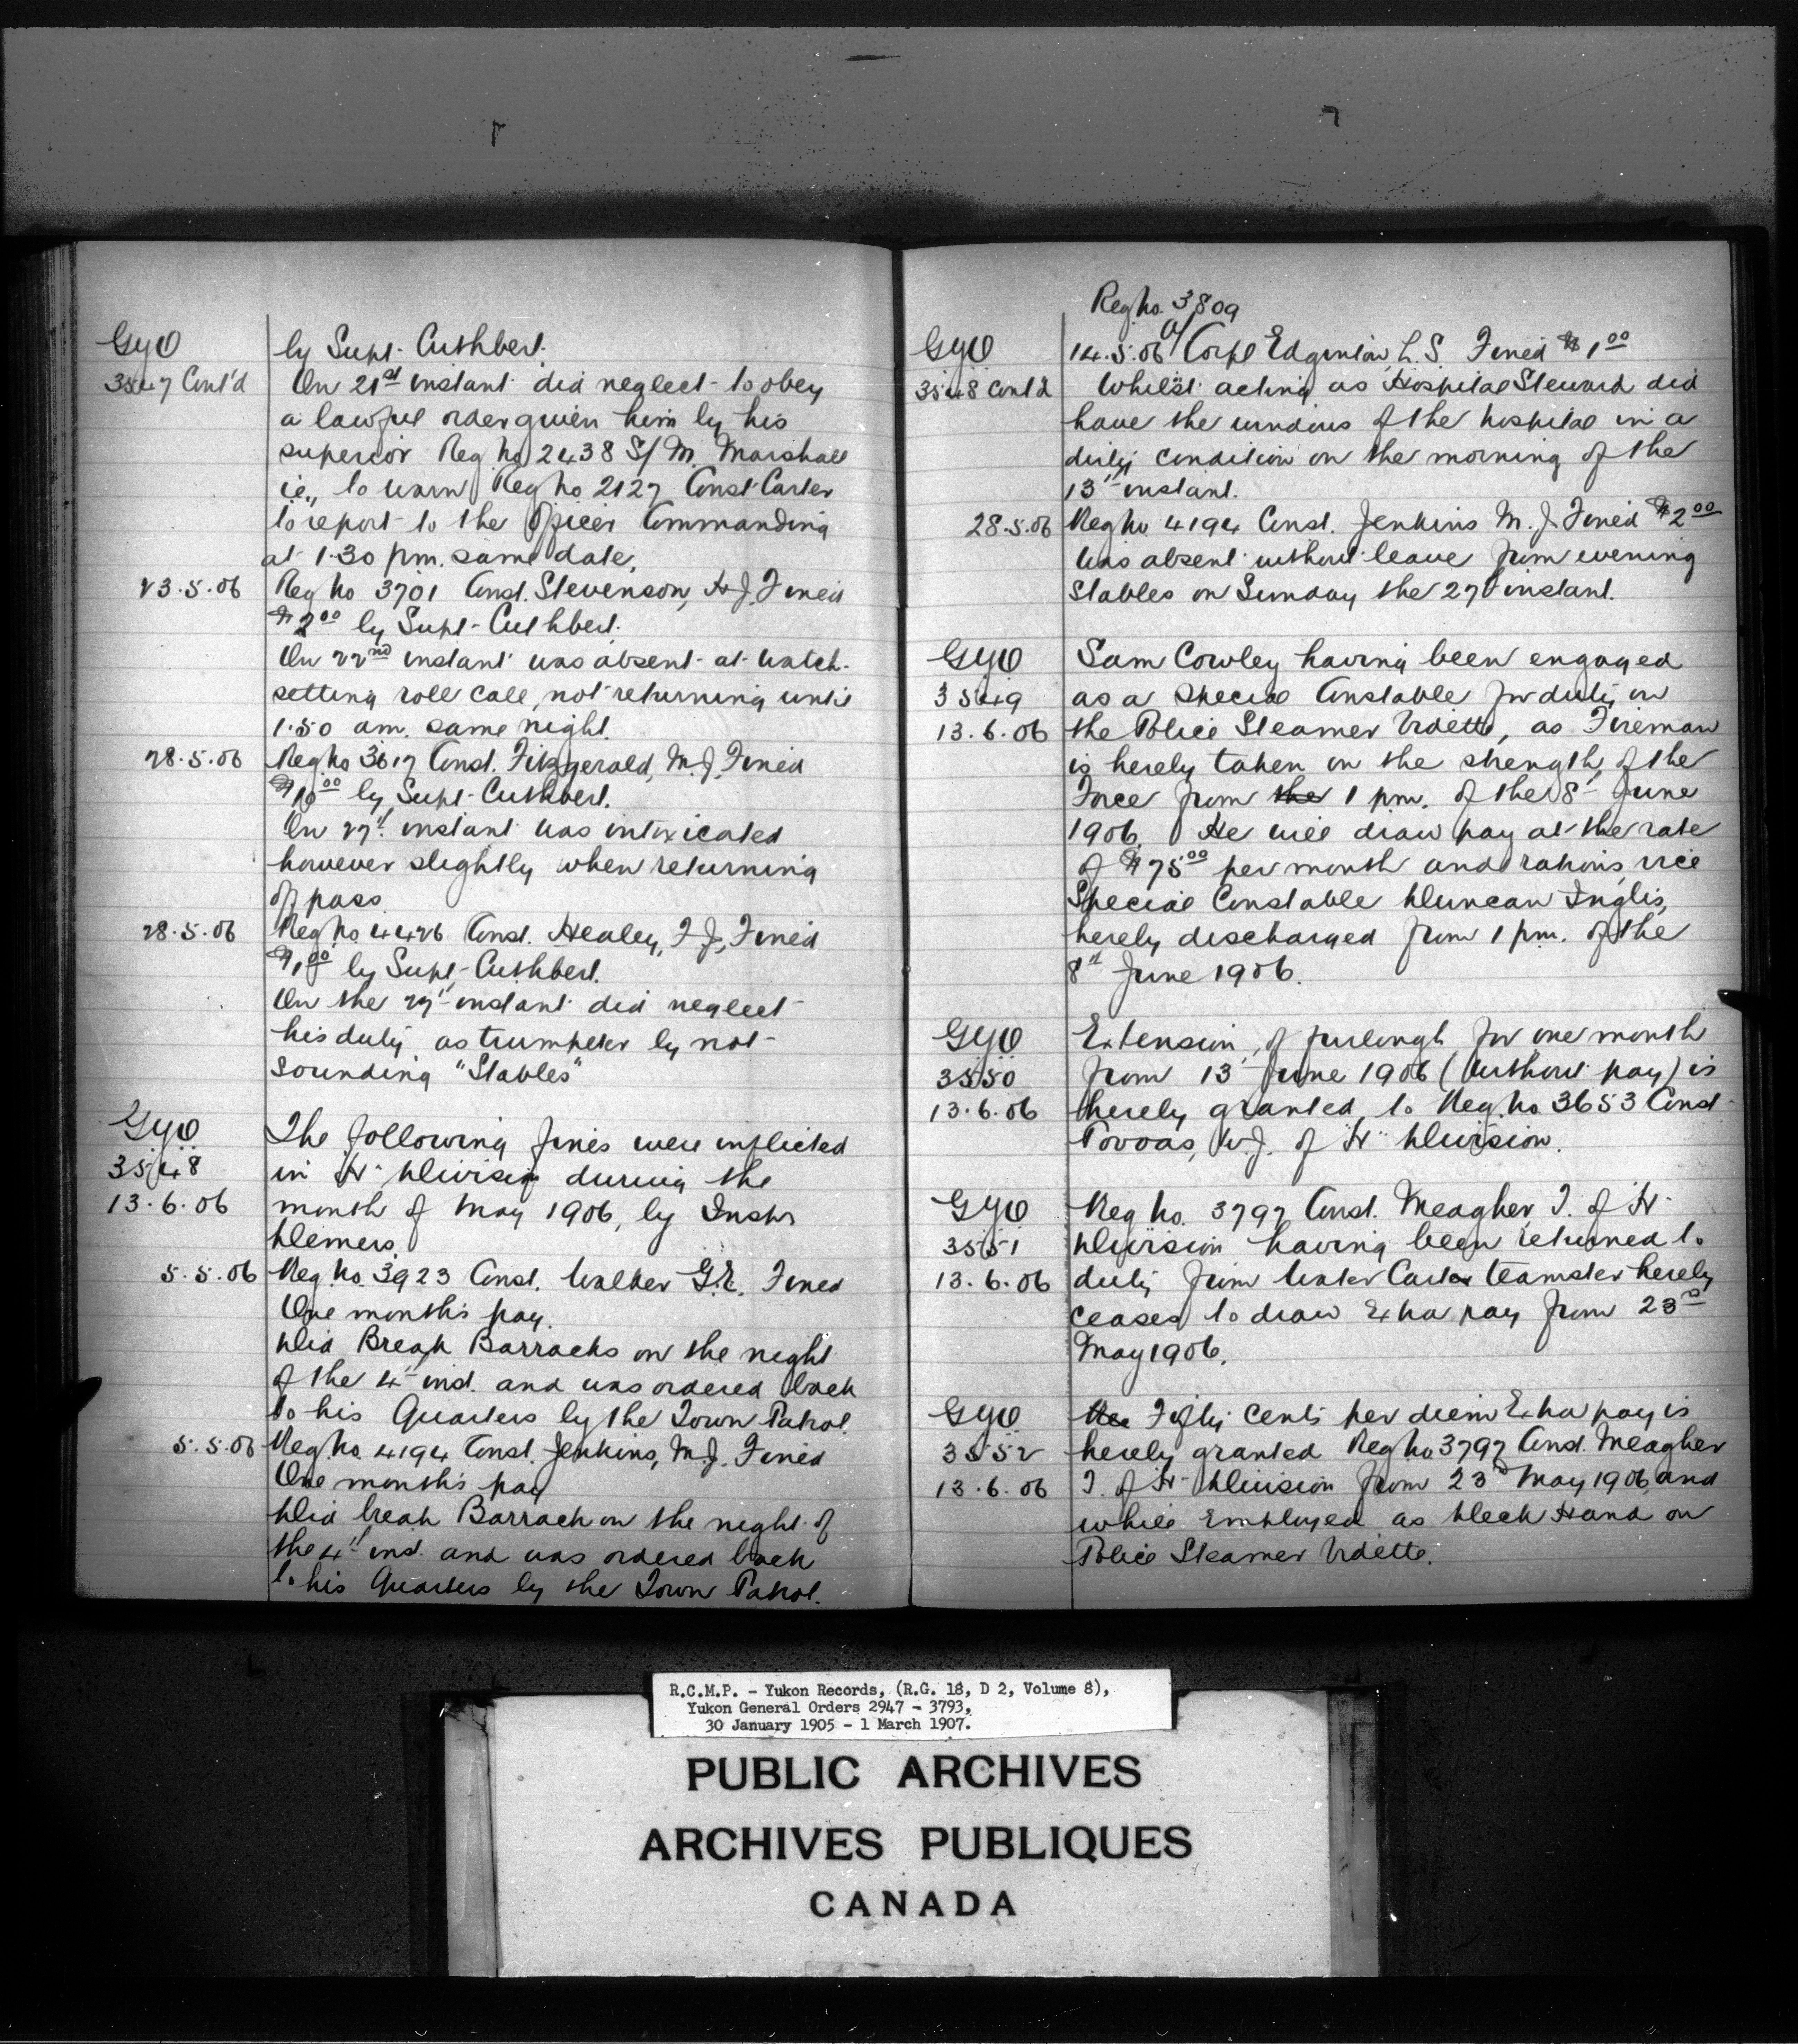 GYO
3547 Cont'd
by Supt. Cuthbert.
On 21st instant did neglect to obey
a lawful order given him by his
superior Reg No 2438 S/M. Marshall
i.e., to warn Reg No 2127 Const Carter
to report to the Officer Commanding
at 1.30 pm. same date.
23.5.06 Reg No 3701 Const. Stevenson, H.J. Fined
$2.00 by Supt. Cuthbert.
On 22nd instant was absent at watch-
setting roll call, not returning until
1.50 am. same night.
28.5.06 Reg No 3617 Const. Fitzgerald, M.J. Fined
$10.00 by Supt. Cuthbert.
On 27th instant was intoxicated
however slightly when returning
off pass.
28.5.06 Reg No 4426 Const. Healey, F.J. Fined
$1.00 by Supt. Cuthbert.
On the 27th instant did neglect
his duty as trumpeter by not
sounding "Stables"
GYO
3548
13.6.06
The following fines were inflicted
in "H" Division during the
month of May 1906, by Inspr
Demers.
5.5.06 Reg. No. 3923 Const. Walker G.E. Fined
One month's pay.
Did Break Barracks on the night
of the 4th inst. and was ordered back
to his Quarters by the Town Patrol.
5.5.06 Reg. No. 4194 Const. Jenkins, M.J. Fined
One month's pay
Did break Barrack on the night of
the 4th inst. and was ordered back
to his Quarters by the Town Patrol.
GYO
3548 Cont'd
Reg No. 3809
14.5.06 a/Corpl Edginton, L.S. Fined $1.00
Whilst acting as Hospital Steward did
have the windows of the hospital in a
dirty condition on the morning of the
13th instant.
28.5.06 Reg No 4194 Const. Jenkins M.J. Fined $2.00
Was absent without leave from evening
Stables on Sunday the 27th instant.
GYO
3549
13.6.06
Sam Cowley having been engaged
as a Special Constable for duty on
the Police Steamer Vidette, as Fireman
is hereby taken on the strength of the
Force from the 1 pm. of the 8th June
1906. He will draw pay at the rate
of $75.00 per month and rations, vice
Special Constable Duncan Inglis,
hereby discharged from 1 pm. of the
8th June 1906.
GYO
3550
13.6.06
Extension of furlough for one month
from 13th June 1906 (without pay) is
hereby granted to Reg. No. 3653 Const
Povoas, W.J. of "H" Division.
GYO
3551
13.6.06
Reg No. 3797 Const. Meagher, T. of "H"
Division having been returned to
duty from Water Cart teamster hereby
ceases to draw Extra pay from 23rd
May 1906.
GYO
3552
13.6.06
Fifty Cents per diem Extra pay is
hereby granted Reg No 3797 Const. Meagher
T. of "H" Division from 23rd May 1906 and
while Employed as Deck Hand on
Police Steamer Vidette.
R.C.M.P. - Yukon Records, (R.G. 18, D 2, Volume 8),
Yukon General Orders 2947 - 3793,
30 January 1905 - 1 March 1907.
PUBLIC ARCHIVES
ARCHIVES PUBLIQUES
CANADA